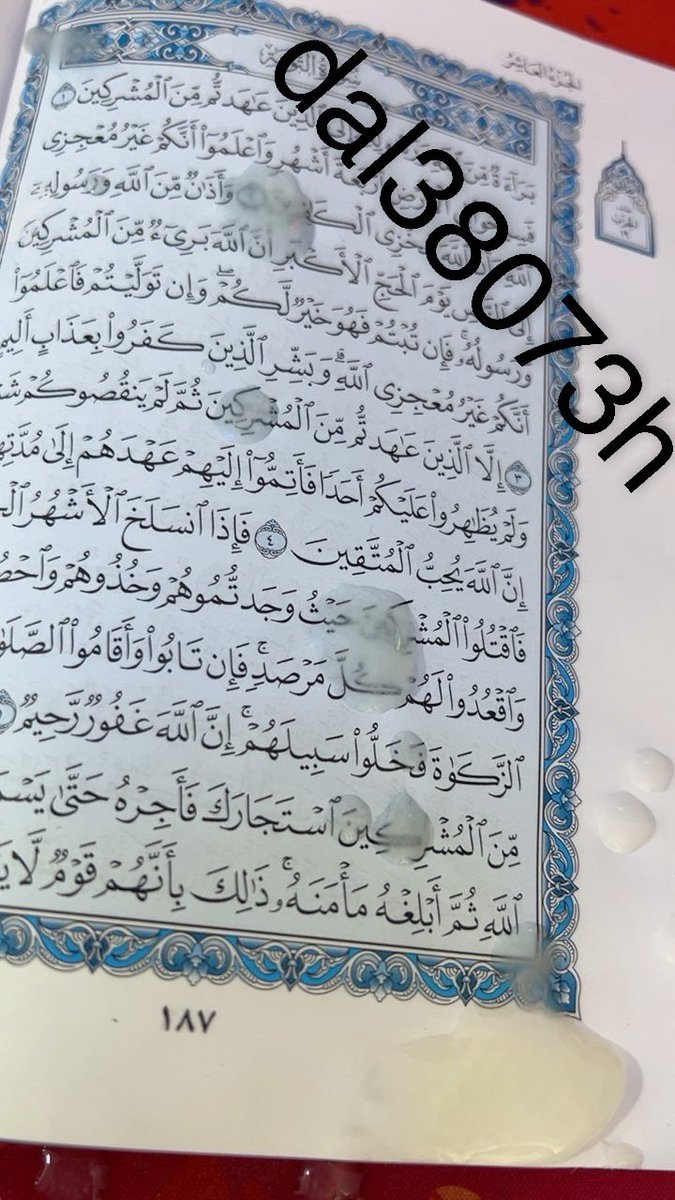 الجزء العاشر
سورة التوبة
dal38073h
بَرَآءَةٌ مِّنَ عَٰهَدتُّم مِّنَ ٱلْمُشْرِكِينَ ١
أَشْهُرٍ وَٱعْلَمُوٓا۟ أَنَّكُمْ غَيْرُ مُعْجِزِى
ٱللَّهِ مُخْزِى وَأَذَٰنٌ مِّنَ ٱللَّهِ وَرَسُولِهِۦٓ
إِلَى ٱلنَّاسِ يَوْمَ ٱلْحَجِّ ٱلْأَكْبَرِ أَنَّ ٱللَّهَ بَرِىٓءٌ مِّنَ ٱلْمُشْرِكِينَ
وَرَسُولُهُۥ فَإِن تُبْتُمْ فَهُوَ خَيْرٌ لَّكُمْ ۖ وَإِن تَوَلَّيْتُمْ فَٱعْلَمُوٓا۟
أَنَّكُمْ غَيْرُ مُعْجِزِى ٱللَّهِ ۗ وَبَشِّرِ ٱلَّذِينَ كَفَرُوا۟ بِعَذَابٍ أَلِيمٍ
٣ إِلَّا ٱلَّذِينَ عَٰهَدتُّم مِّنَ ٱلْمُشْرِكِينَ ثُمَّ لَمْ يَنقُصُوكُمْ
وَلَمْ يُظَٰهِرُوا۟ عَلَيْكُمْ أَحَدًا فَأَتِمُّوٓا۟ إِلَيْهِمْ عَهْدَهُمْ إِلَىٰ مُدَّتِهِ
إِنَّ ٱللَّهَ يُحِبُّ ٱلْمُتَّقِينَ ٤ فَإِذَا ٱنسَلَخَ ٱلْأَشْهُرُ
فَٱقْتُلُوا۟ ٱلْمُشْرِكِينَ حَيْثُ وَجَدتُّمُوهُمْ وَخُذُوهُمْ
وَٱقْعُدُوا۟ لَهُمْ كُلَّ مَرْصَدٍ ۚ فَإِن تَابُوا۟ وَأَقَامُوا۟ ٱلصَّلَوٰ
ٱلزَّكَوٰةَ فَخَلُّوا۟ سَبِيلَهُمْ ۚ إِنَّ ٱللَّهَ غَفُورٌ رَّحِيمٌ
مِّنَ ٱلْمُشْرِكِينَ ٱسْتَجَارَكَ فَأَجِرْهُ حَتَّىٰ يَسْمَ
ٱللَّهِ ثُمَّ أَبْلِغْهُ مَأْمَنَهُۥ ۚ ذَٰلِكَ بِأَنَّهُمْ قَوْمٌ لَّا
١٨٧